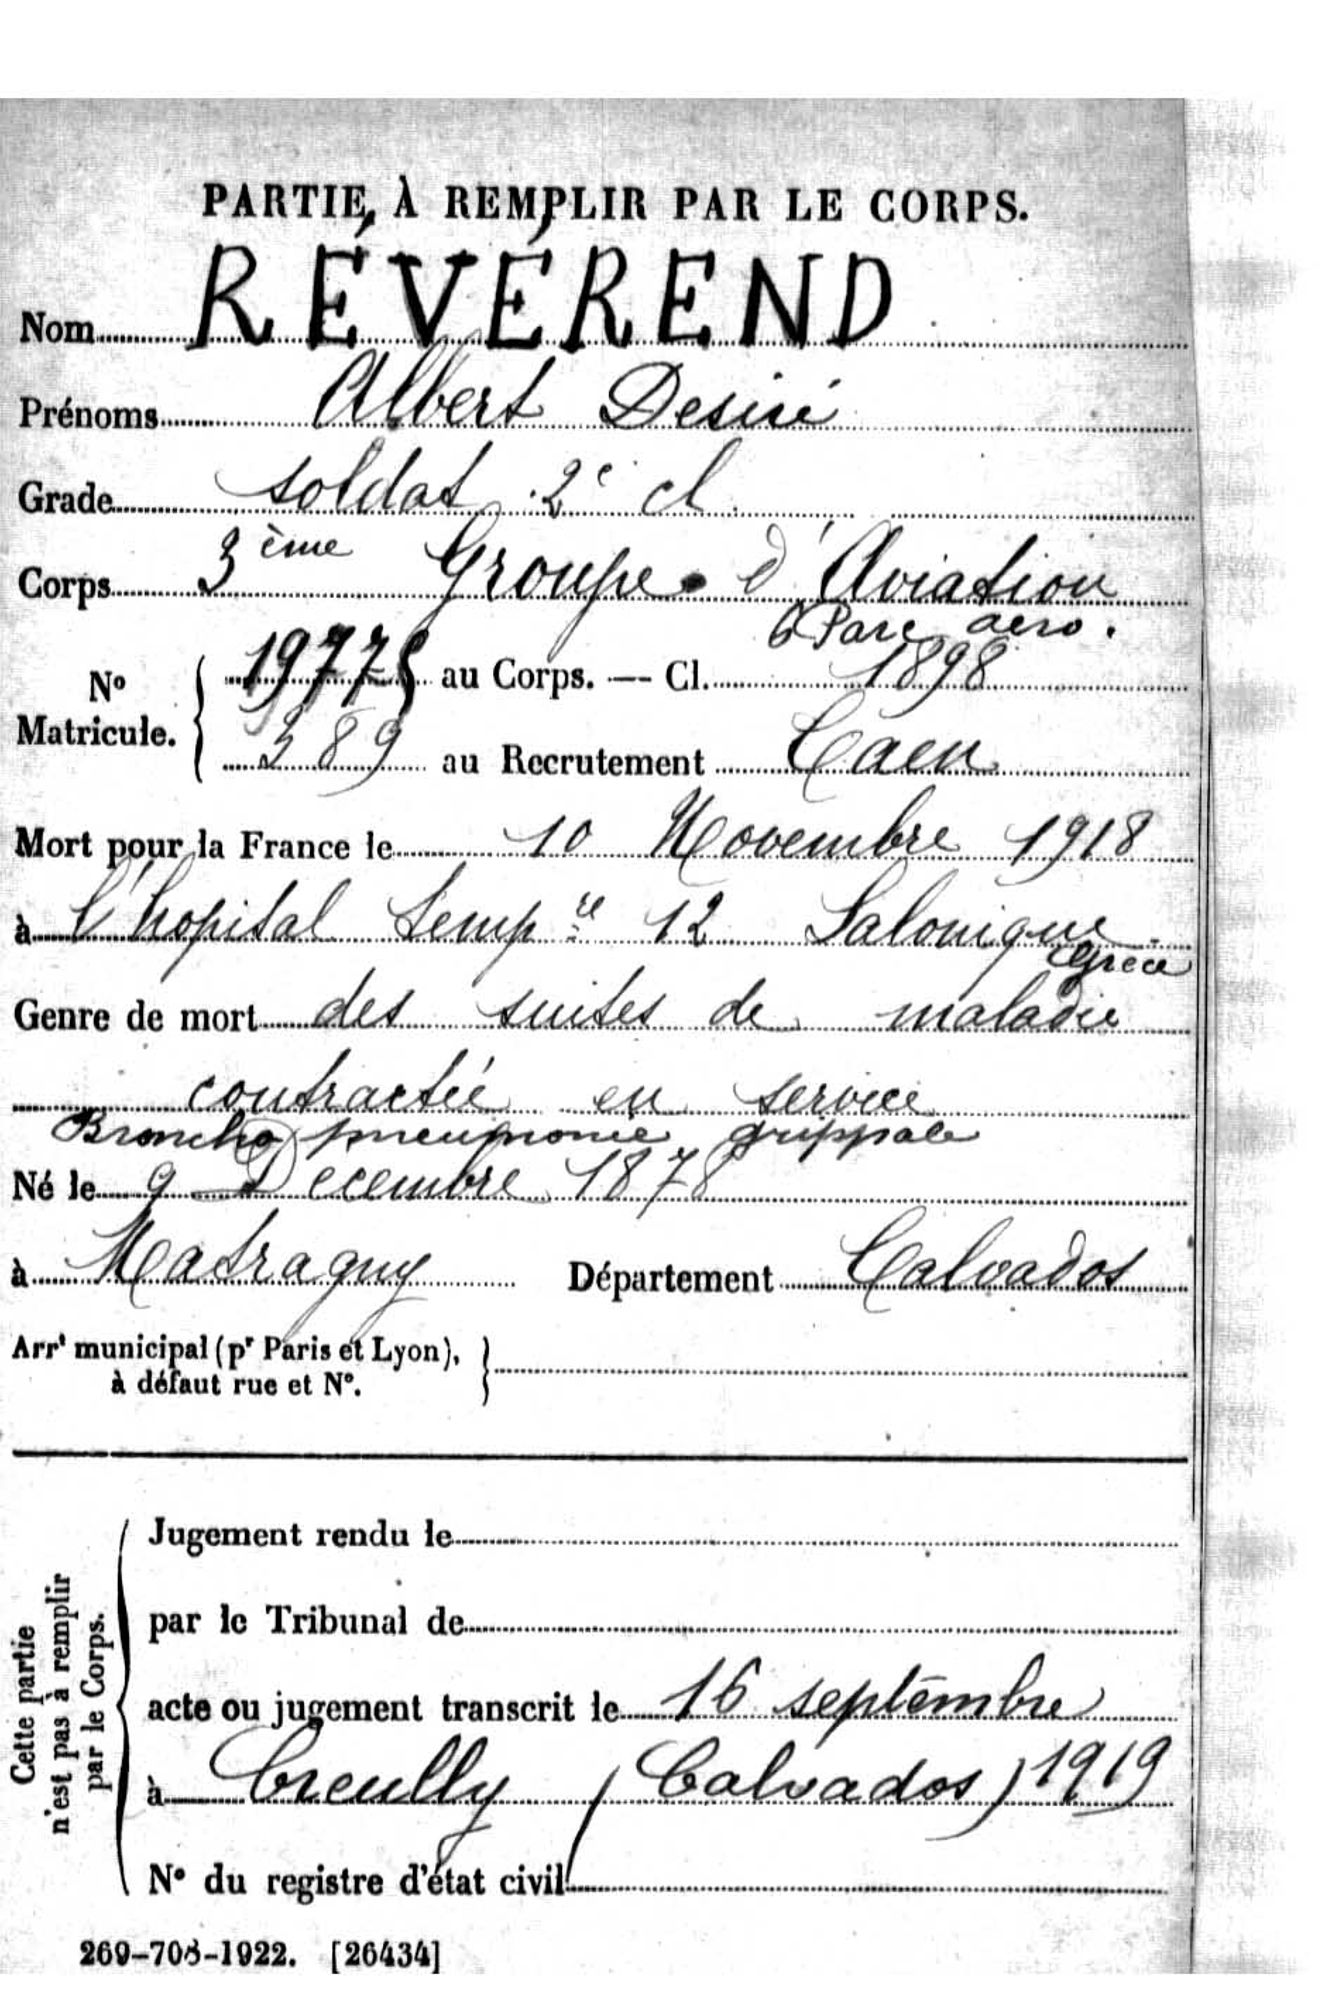 PARTIE À REMPLIR PAR LE CORPS.
Nom RÉVÉREND
Prénoms Albert Desiré
Grade soldat 2e cl
Corps 3ème Groupe d'Aviation
6 Parc aero.
No Matricule. 19775 au Corps. — Cl. 1898
389 au Recrutement Caen
Mort pour la France le 10 Novembre 1918
à l'hopital temp re 12 Salonique
Grèce
Genre de mort des suites de maladie
contractée en service
Broncho pneumonie grippale
Né le 9 Decembre 1878
à Martragny Département Calvados
Arrt municipal (pr Paris et Lyon),
à défaut rue et No.
Cette partie
n'est pas à remplir
par le Corps.
Jugement rendu le
par le Tribunal de
acte ou jugement transcrit le 16 septembre
à Creully (Calvados) 1919
No du registre d'état civil
269-708-1922. [26434]